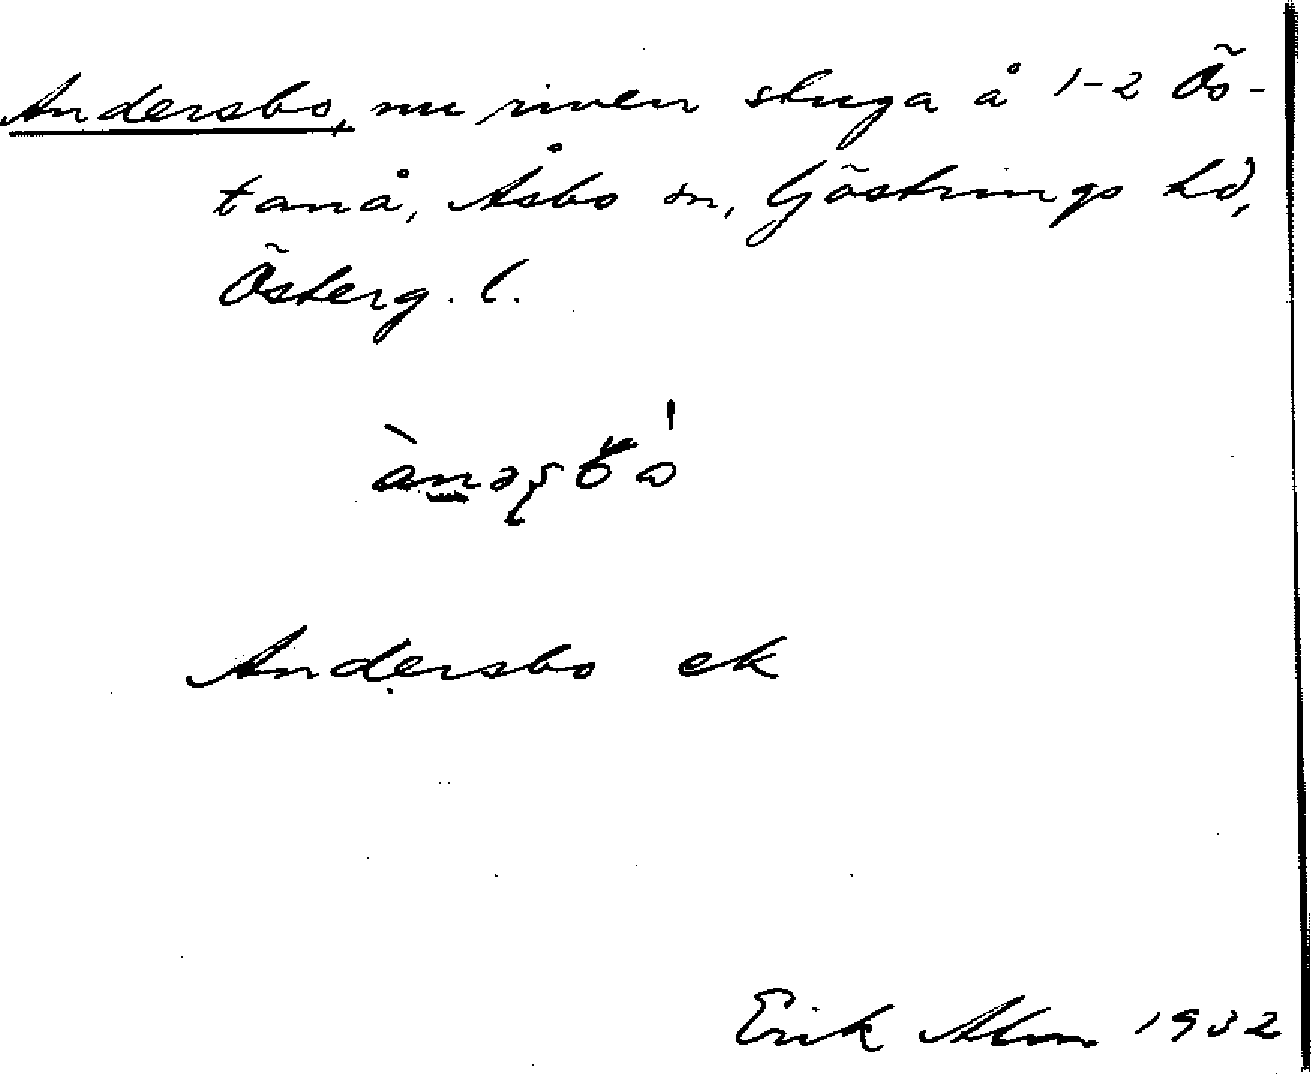 Andersbo, nu riven stuga å 1-2 Ös-
tanå, Åsbo sn, Göstrings hd,
Österg. l.
Andersbo ek
Erik Alm 1932